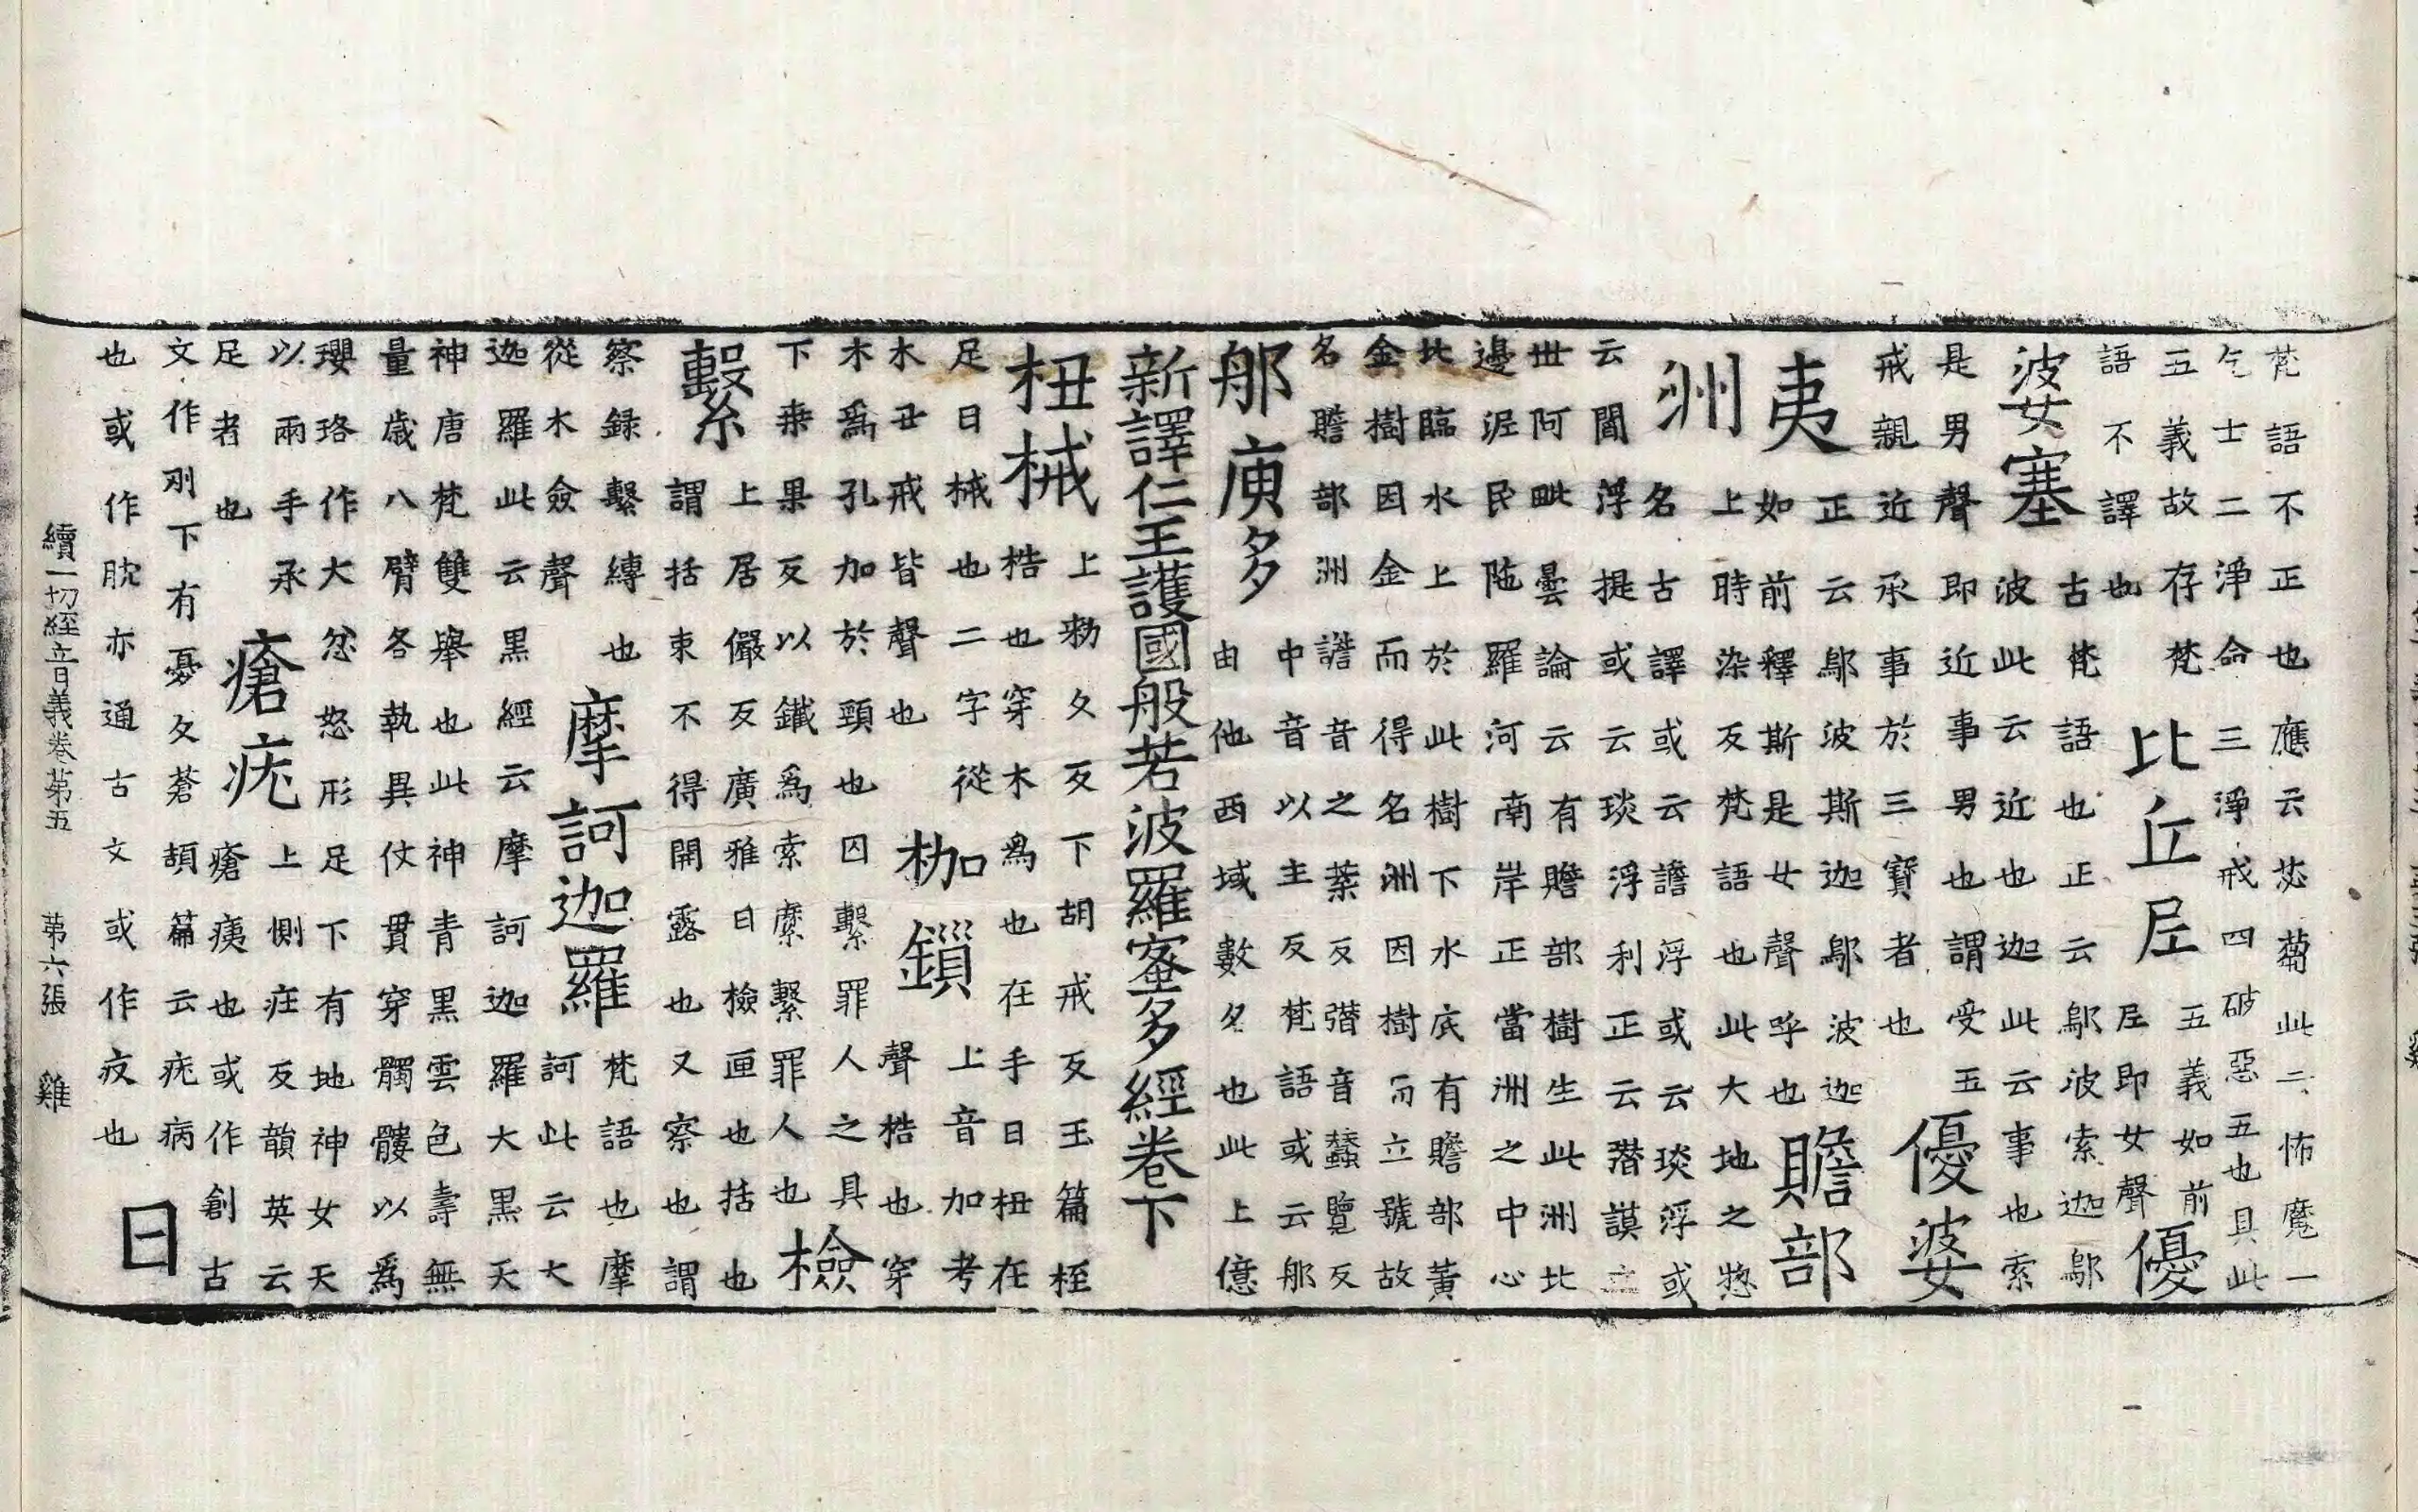 梵語不正也應云苾蒭此二怖魔一
乞士二淨命三淨戒四破惡五也具此
五義故存梵
語不譯也
比丘尼
五義如前
尼即女聲
優
婆塞
古梵語也正云鄔波索迦鄔
波此云近也迦此云事也索
是男聲即近事男也謂受五
戒親近承事於三寶者也
優婆
夷
正云鄔波斯迦鄔波迦
如前釋斯是女聲呼也
贍部
洲
上時染反梵語也此大地之惣
名古譯或云譫浮或云琰浮或
云閻浮提或云琰浮利正云潛謨立
世阿毗曇論云有贍部樹生此洲北
邊泥民陁羅河南岸正當洲之中心
北臨水上於此樹下水底有贍部黃
金樹因金而得名洲因樹而立號故
名贍部洲譫音之葉反潛音蠶覽反
那庾多
中音以主反梵語或云那
由他西域數名也此上億
新譯仁王護國般若波羅蜜多經卷下
杻械
上勑久反下胡戒反玉篇桎
梏也穿木為也在手曰杻在
足曰械也二字從
木丑戒皆聲也
枷鎖
上音加考
聲梏也穿
木為孔加於頸也囚繫罪人之具
下桒果反以鐵為索縻繫罪人也
檢
繫
上居儼反廣雅曰檢匣也括也
謂括束不得開露也又察也謂
察録繫縛也
從木僉聲
摩訶迦羅
梵語也摩
訶此云大
迦羅此云黑經云摩訶迦羅大黑天
神唐梵雙舉也此神青黑雲色壽無
量歲八臂各執異仗貫穿髑髏以為
瓔珞作大忿怒形足下有地神女天
以兩手承
足者也
瘡疣
上側疰反韻英云
瘡痍也或作創古
文作刅下有憂久反蒼頡篇云疣病
也或作肬亦通古文或作疫也
日
續一切經音義卷第五 第六張 雞